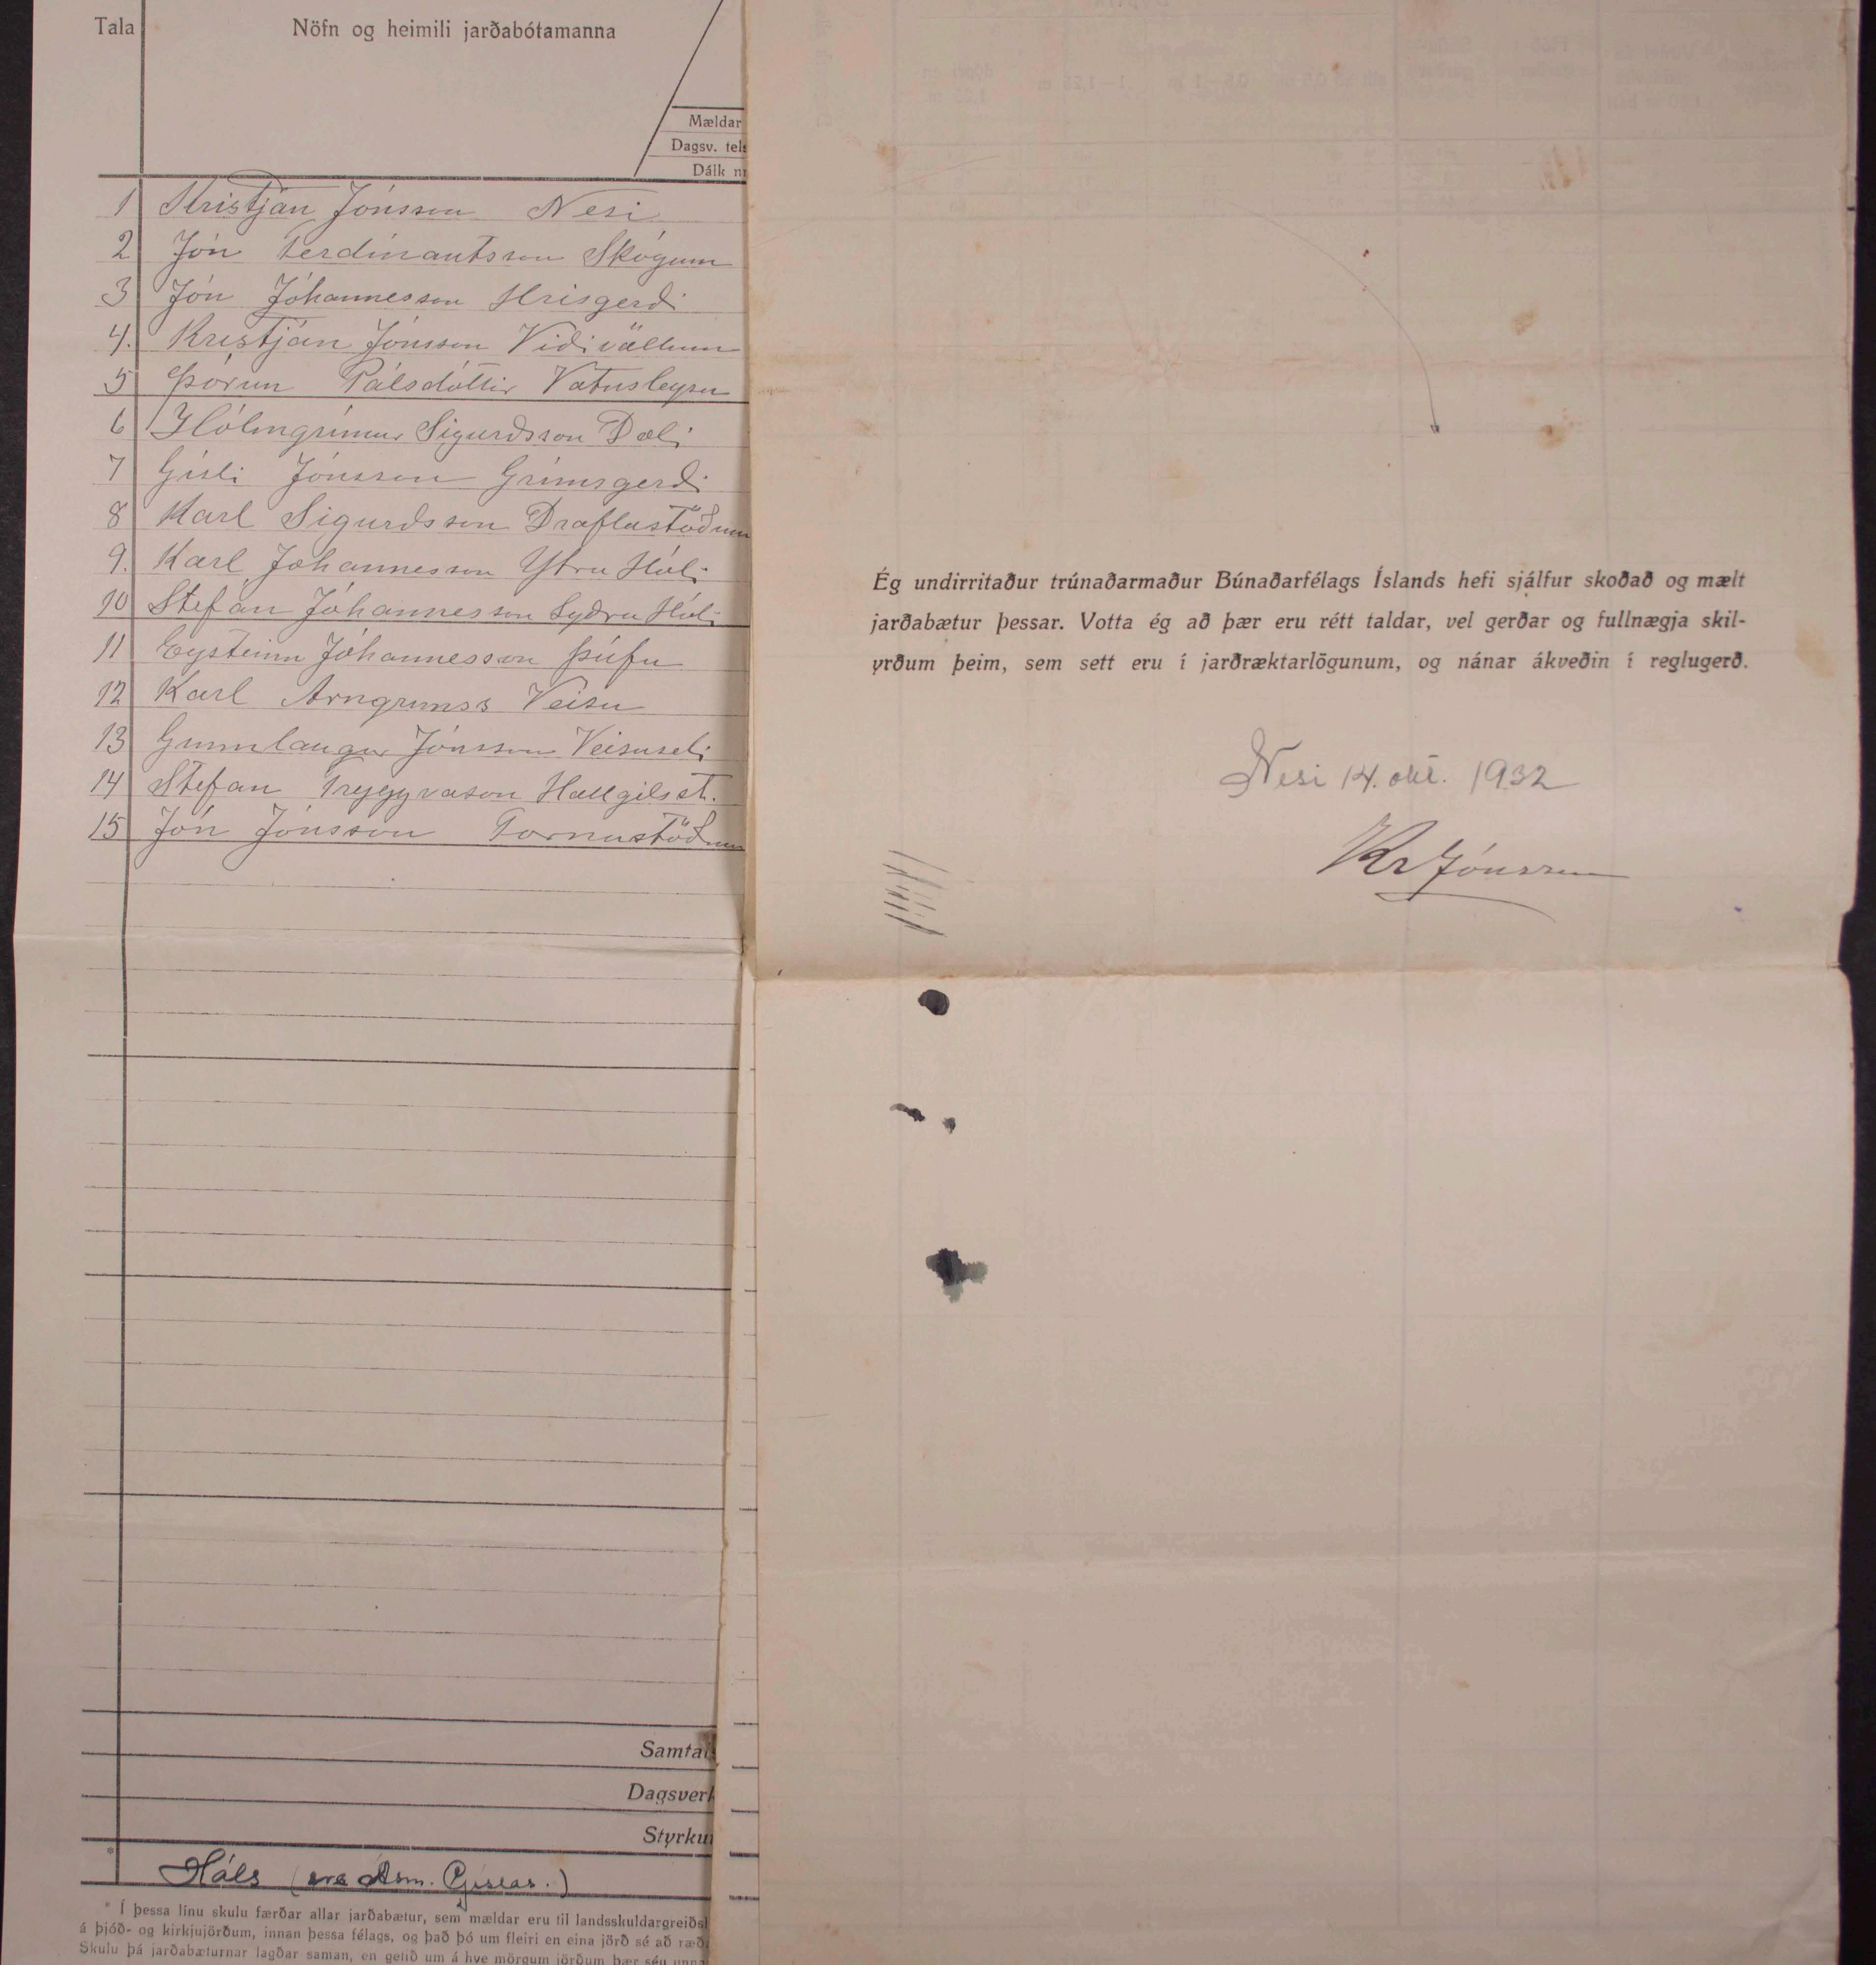 Tala
Nöfn og heimili jarðabótamanna
Mældar
Dagsv. tels
Dálk nr
1 Kristján Jónsson Nesi
2 Jón Ferdínantsson Skógum
3 Jón Jóhannesson Hrisgerði
4. Kristján Jónsson Viðivöllum
5 Þórun Pálsdóttir Vatnsleysu
6 Hólmgrímur Sigurðsson Dæli
7 Gísli Jónsson Grímsgerði
8 Karl Sigurðsson Draflastöðum
9. Karl Jóhannesson Ytra Hóli
10 Stefán Jóhannesson Syðra Hóli
11 Eysteinn Jóhannesson Þúfu
12 Karl Arngrimss Veisu
13 Gunnlaugur Jónsson Veisuseli
14 Stefan Tryggvason Hallgilsst.
15 Jón Jónsson Fornustöðum
Samtals
Dagsverk
Styrkur
* Háls ( Ásm. Gíslas. )
* Í þessa línu skulu færðar allar jarðabætur, sem mældar eru til landsskuldargreiðsl
á þjóð- og kirkjujörðum, innan þessa félags, og það þó um fleiri en eina jörð sé að ræð
Skulu þá jarðabæturnar lagðar saman, en getið um á hve mörgum jörðum þær séu unna
Ég undirritaður trúnaðarmaður Búnaðarfélags Íslands hefi sjálfur skoðað og mælt
jarðabætur þessar. Votta ég að þær eru rétt taldar, vel gerðar og fullnægja skil-
yrðum þeim, sem sett eru í jarðræktarlögunum, og nánar ákveðin í reglugerð.
Nesi 14. okt. 1932
Kr Jónsson